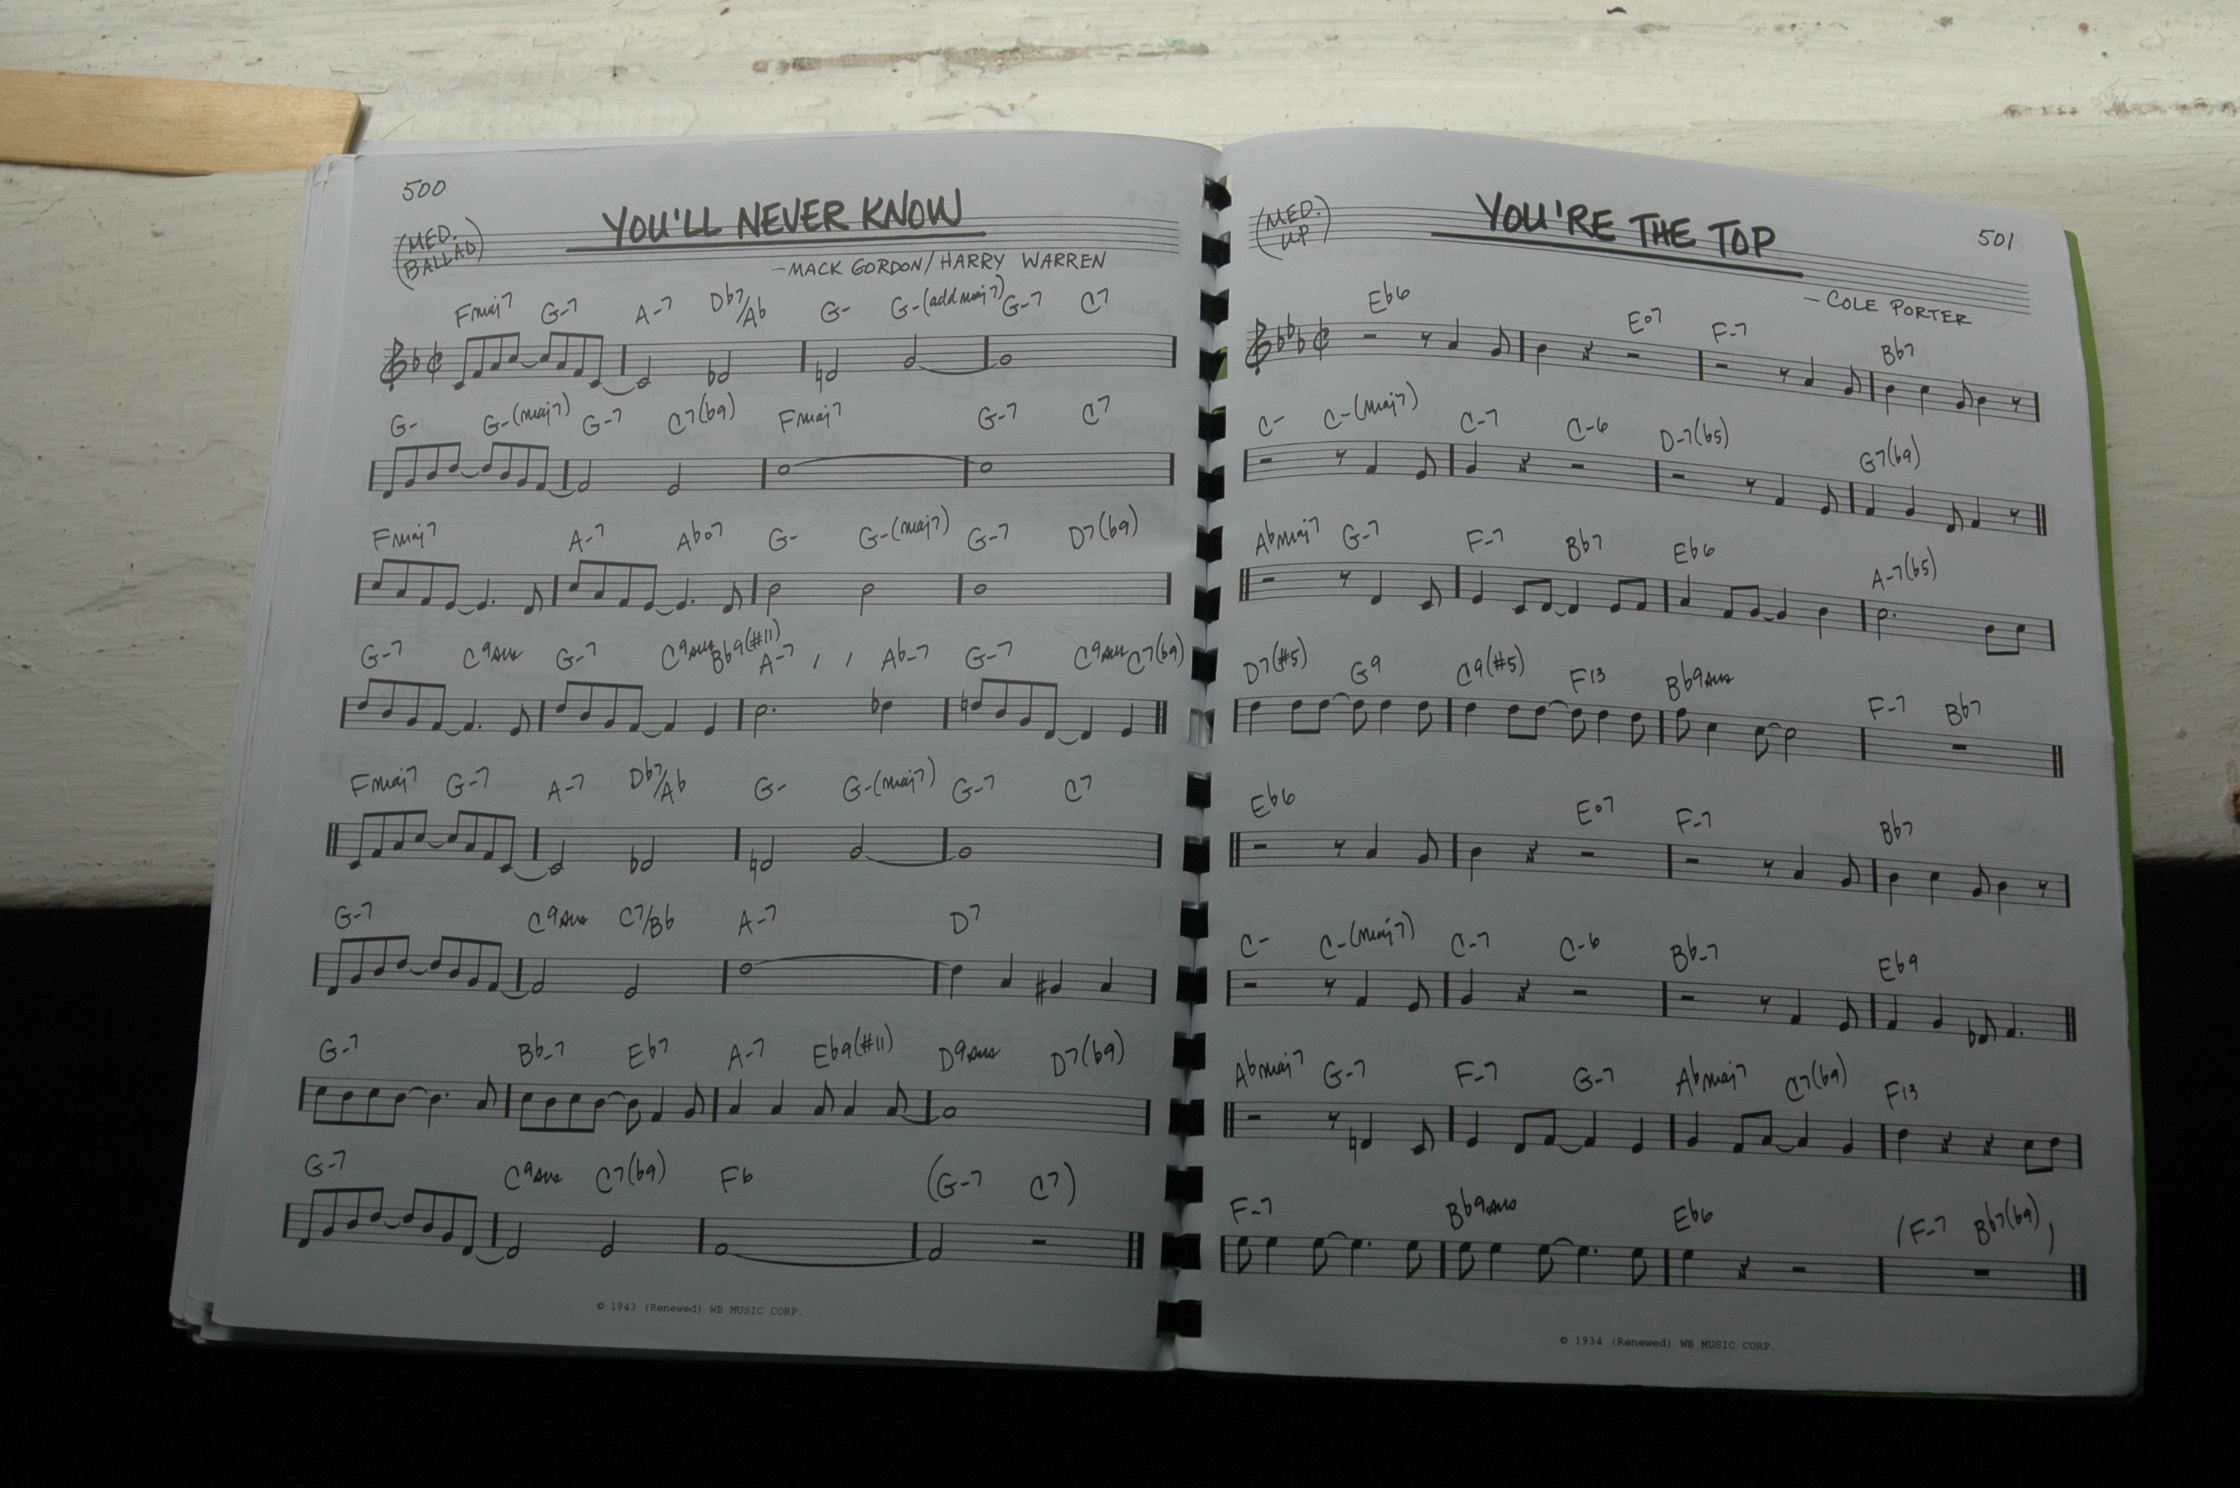 500
YOU'LL NEVER KNOW
(MED. BALLAD)
-MACK GORDON/HARRY WARREN
Fmaj7 G-7 A-7 Db7/Ab G- G-(add maj7) G-7 C7
G- G-(maj7) G-7 C7(b9) Fmaj7 G-7 C7
Fmaj7 A-7 Abo7 G- G-(maj7) G-7 D7(b9)
G-7 C9sus G-7 C9sus Bb9(#11) A-7 / / Ab-7 G-7 C9sus C7(b9)
Fmaj7 G-7 A-7 Db7/Ab G- G-(maj7) G-7 C7
G-7 C9sus C7/Bb A-7 D7
G-7 Bb-7 Eb7 A-7 Eb9(#11) D9sus D7(b9)
G-7 C9sus C7(b9) F6 (G-7 C7)
© 1943 (Renewed) WB MUSIC CORP.
501
YOU'RE THE TOP
(MED. UP)
- COLE PORTER
Eb6 Eo7 F-7 Bb7
C- C-(maj7) C-7 C-6 D-7(b5) G7(b9)
Abmaj7 G-7 F-7 Bb7 Eb6 A-7(b5)
D7(#5) G9 C9(#5) F13 Bb9sus F-7 Bb7
Eb6 Eo7 F-7 Bb7
C- C-(maj7) C-7 C-6 Bb-7 Eb9
Abmaj7 G-7 F-7 G-7 Abmaj7 C7(b9) F13
F-7 Bb9sus Eb6 (F-7 Bb7(b9))
© 1934 (Renewed) WB MUSIC CORP.